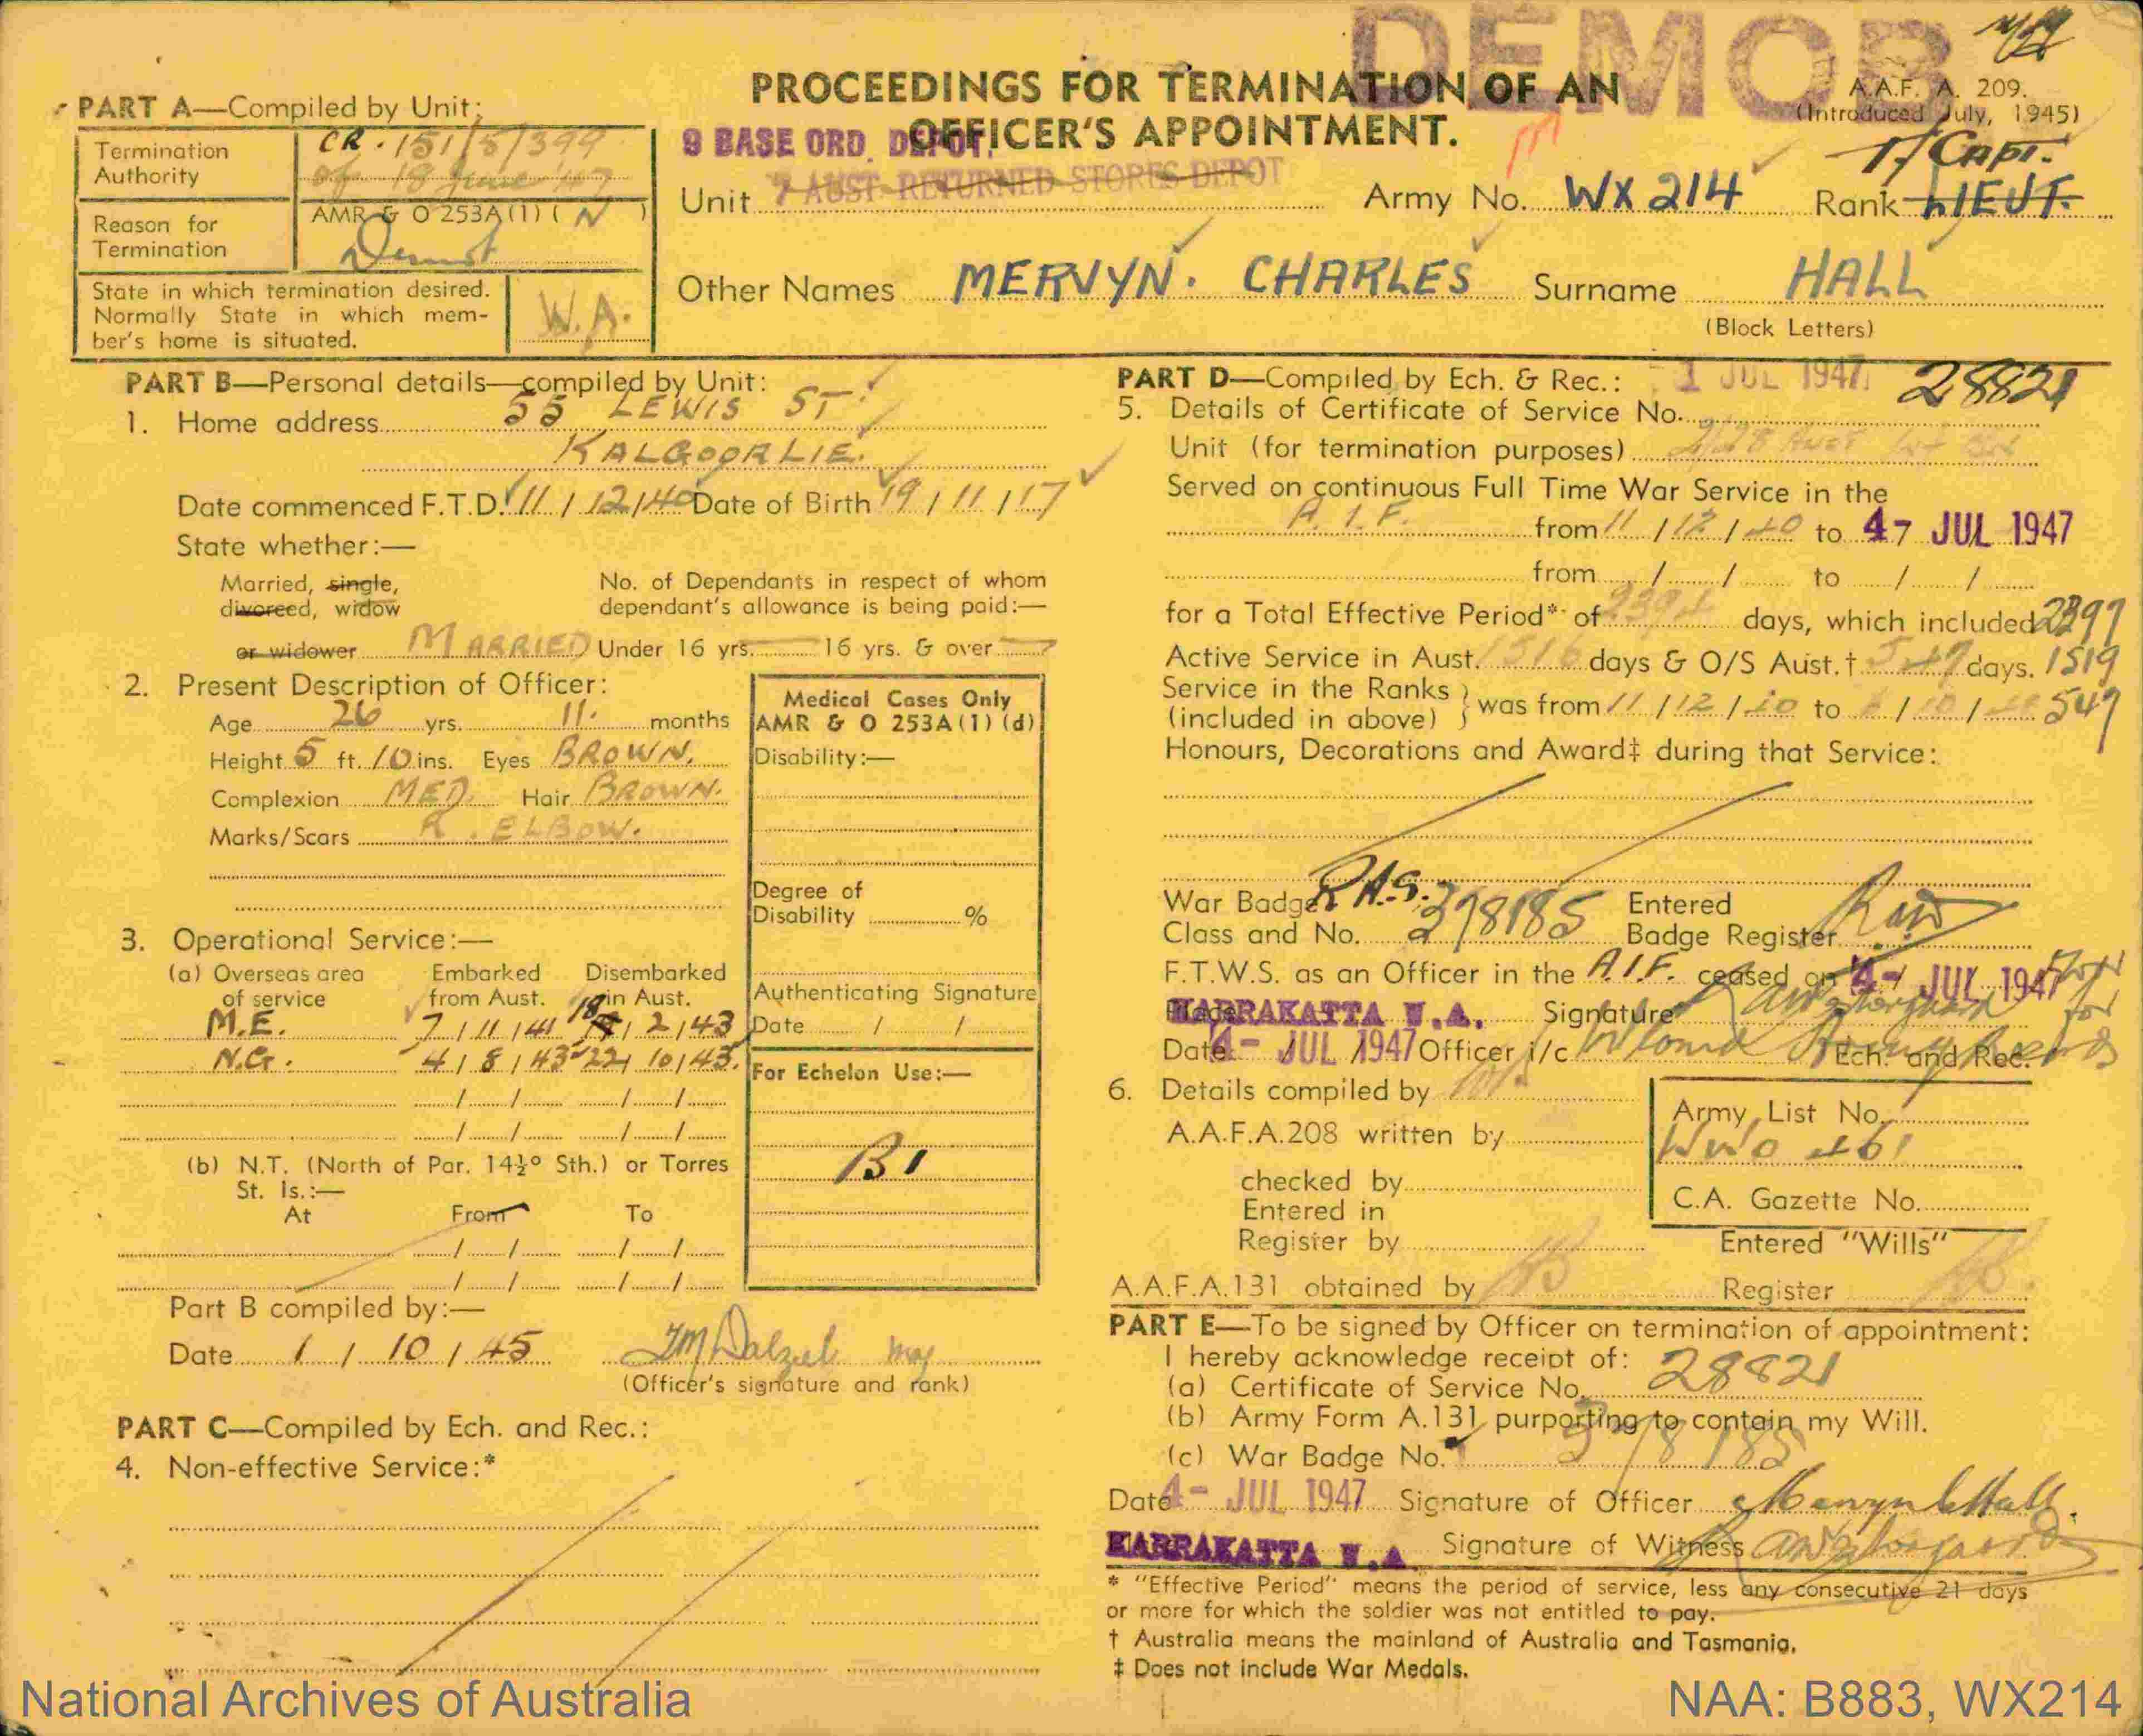 DEMOB
PROCEEDINGS FOR TERMINATION OF AN
OFFICER'S APPOINTMENT.
A.A.F. A. 209.
(Introduced July, 1945)
PART A—Compiled by Unit:
Termination Authority CR. 151/5/399
of 13 June 47
Reason for Termination AMR & O 253A(1) ( N )
Demob
State in which termination desired.
Normally State in which mem-
ber's home is situated. W.A.
9 BASE ORD. DEPOT.
Unit 7 AUST RETURNED STORES DEPOT Army No. WX 214 Rank LIEUT. T/ CAPT.
Other Names MERVYN. CHARLES Surname HALL
(Block Letters)
PART B—Personal details—compiled by Unit:
1. Home address 55 LEWIS ST.
KALGOORLIE.
Date commenced F.T.D. 11 / 12 / 40 Date of Birth 19 / 11 / 17
State whether:—
Married, single,
divorced, widow
or widower MARRIED
No. of Dependants in respect of whom
dependant's allowance is being paid:—
Under 16 yrs. — 16 yrs. & over —
2. Present Description of Officer:
Age 26 yrs. 11. months
Height 5 ft. 10 ins. Eyes BROWN.
Complexion MED. Hair BROWN.
Marks/Scars R. ELBOW.
Medical Cases Only
AMR & O 253A(1) (d)
Disability:—
Degree of
Disability %
Authenticating Signature
Date / /
For Echelon Use:—
B1
3. Operational Service:—
(a) Overseas area of service Embarked from Aust. Disembarked in Aust.
M.E. 7 / 11 / 41 18 / 2 / 43
N.G. 4 / 8 / 43 22 / 10 / 43.
(b) N.T. (North of Par. 14½° Sth.) or Torres
St. Is.:—
At From To
Part B compiled by:—
Date 1 / 10 / 45 Dalziel Maj
(Officer's signature and rank)
PART C—Compiled by Ech. and Rec.:
4. Non-effective Service:*
PART D—Compiled by Ech. & Rec.: 1 JUL 1947
5. Details of Certificate of Service No. 28821
Unit (for termination purposes) 2/28 Aust Inf Bn
Served on continuous Full Time War Service in the
A.I.F. from 11 / 12 / 40 to 4 7 JUL 1947
from / / to / /
for a Total Effective Period* of days, which included 2397
Active Service in Aust. 1516 days & O/S Aust.† 547 days. 1519
Service in the Ranks
(included in above) was from 11 / 12 / 40 to / 10 / 549
Honours, Decorations and Award‡ during that Service:
War Badge Class and No. R.A.S. 278185 Entered Badge Register
F.T.W.S. as an Officer in the A.I.F. ceased on 4 - JUL 1947
Place KARRAKATTA W.A. Signature
Date 4 - JUL 1947 Officer i/c Ech. and Rec.
6. Details compiled by
A.A.F.A.208 written by
checked by
Entered in
Register by
Army List No.
C.A. Gazette No.
Entered "Wills"
A.A.F.A.131 obtained by Register
PART E—To be signed by Officer on termination of appointment:
I hereby acknowledge receipt of:
(a) Certificate of Service No. 28821
(b) Army Form A.131 purporting to contain my Will.
(c) War Badge No. 278185
Date 4 - JUL 1947 Signature of Officer Mervyn C Hall.
KARRAKATTA W.A. Signature of Witness
* "Effective Period" means the period of service, less any consecutive 21 days
or more for which the soldier was not entitled to pay.
† Australia means the mainland of Australia and Tasmania.
‡ Does not include War Medals.
National Archives of Australia NAA: B883, WX214